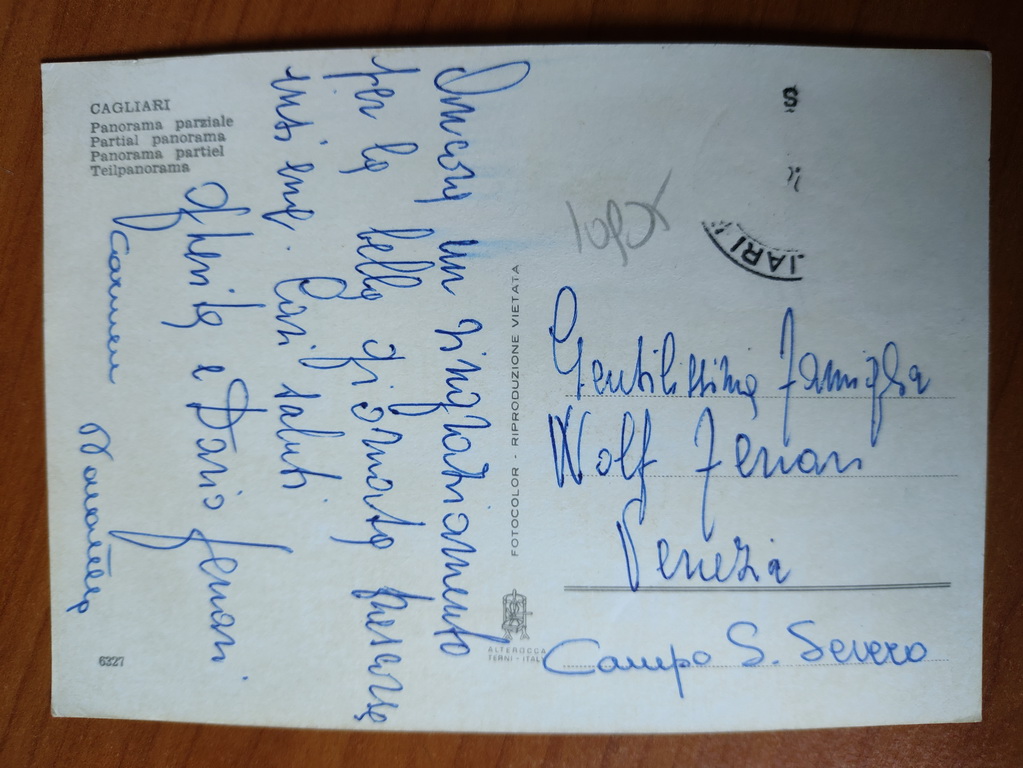 CAGLIARI
Panorama parziale
Partial panorama
Panorama partiel
Teilpanorama
Ancora un ringraziamento
per la bella giornata trascorsa
insieme. Cari saluti
e Dario Ferrari
Carmen
6327
FOTOCOLOR - RIPRODUZIONE VIETATA
ALTEROCCA
TERNI - ITALY
S
IARI
Gentilissima Famiglia
Wolf Ferrari
Venezia
Campo S. Severo